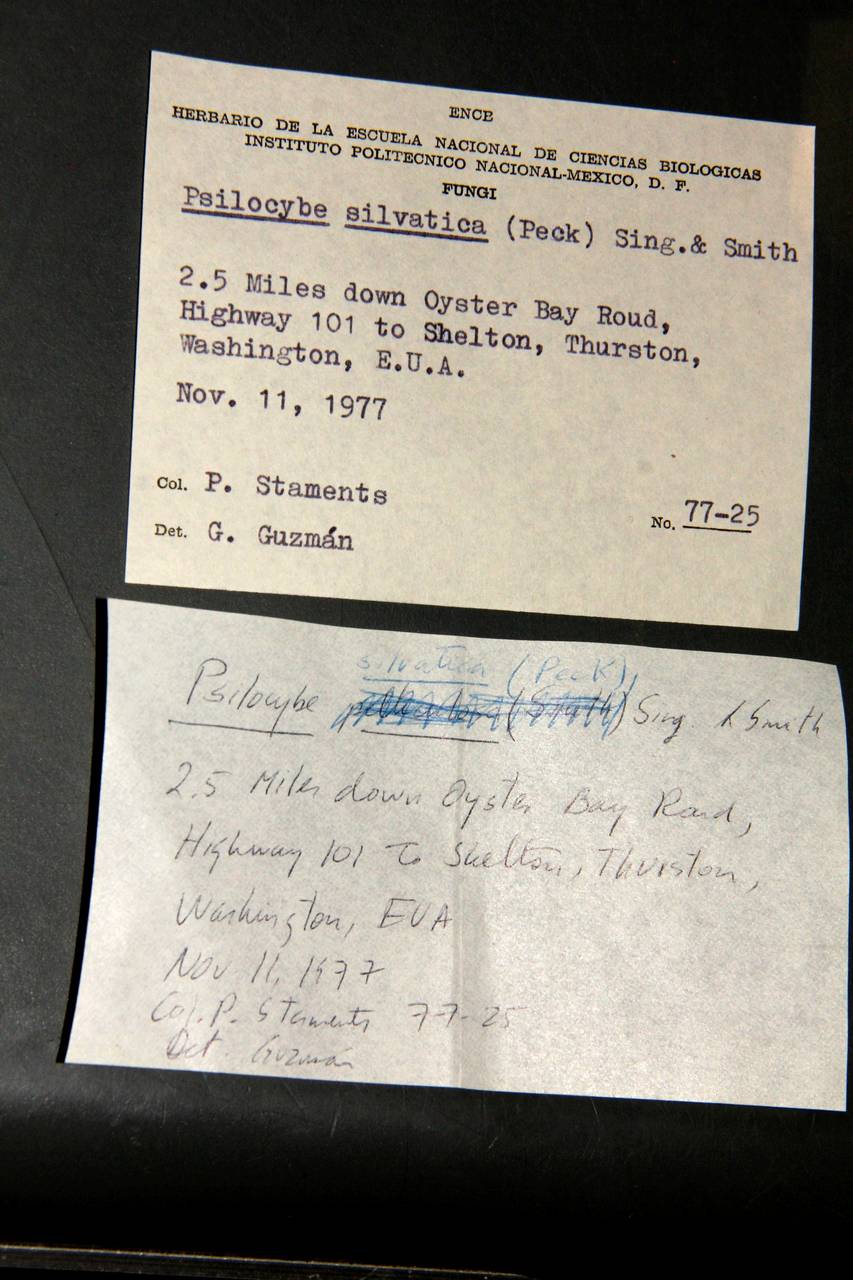 ENCE
HERBARIO DE LA ESCUELA NACIONAL DE CIENCIAS BIOLOGICAS
INSTITUTO POLITECNICO NACIONAL-MEXICO, D. F.
FUNGI
Psilocybe silvatica (Peck) Sing.& Smith
2.5 Miles down Oyster Bay Roud,
Highway 101 to Shelton, Thurston,
Washington, E.U.A.
Nov. 11, 1977
Col. P. Staments
No. 77-25
Det. G. Guzmán
silvatica (Peck)
Psilocybe (Smith) Sing. & Smith
2.5 Miles down Oyster Bay Road,
Highway 101 to Shelton, Thurston,
Washington, EUA
Nov 11, 1977
Col. P. Staments 77-25
Det. Guzmán